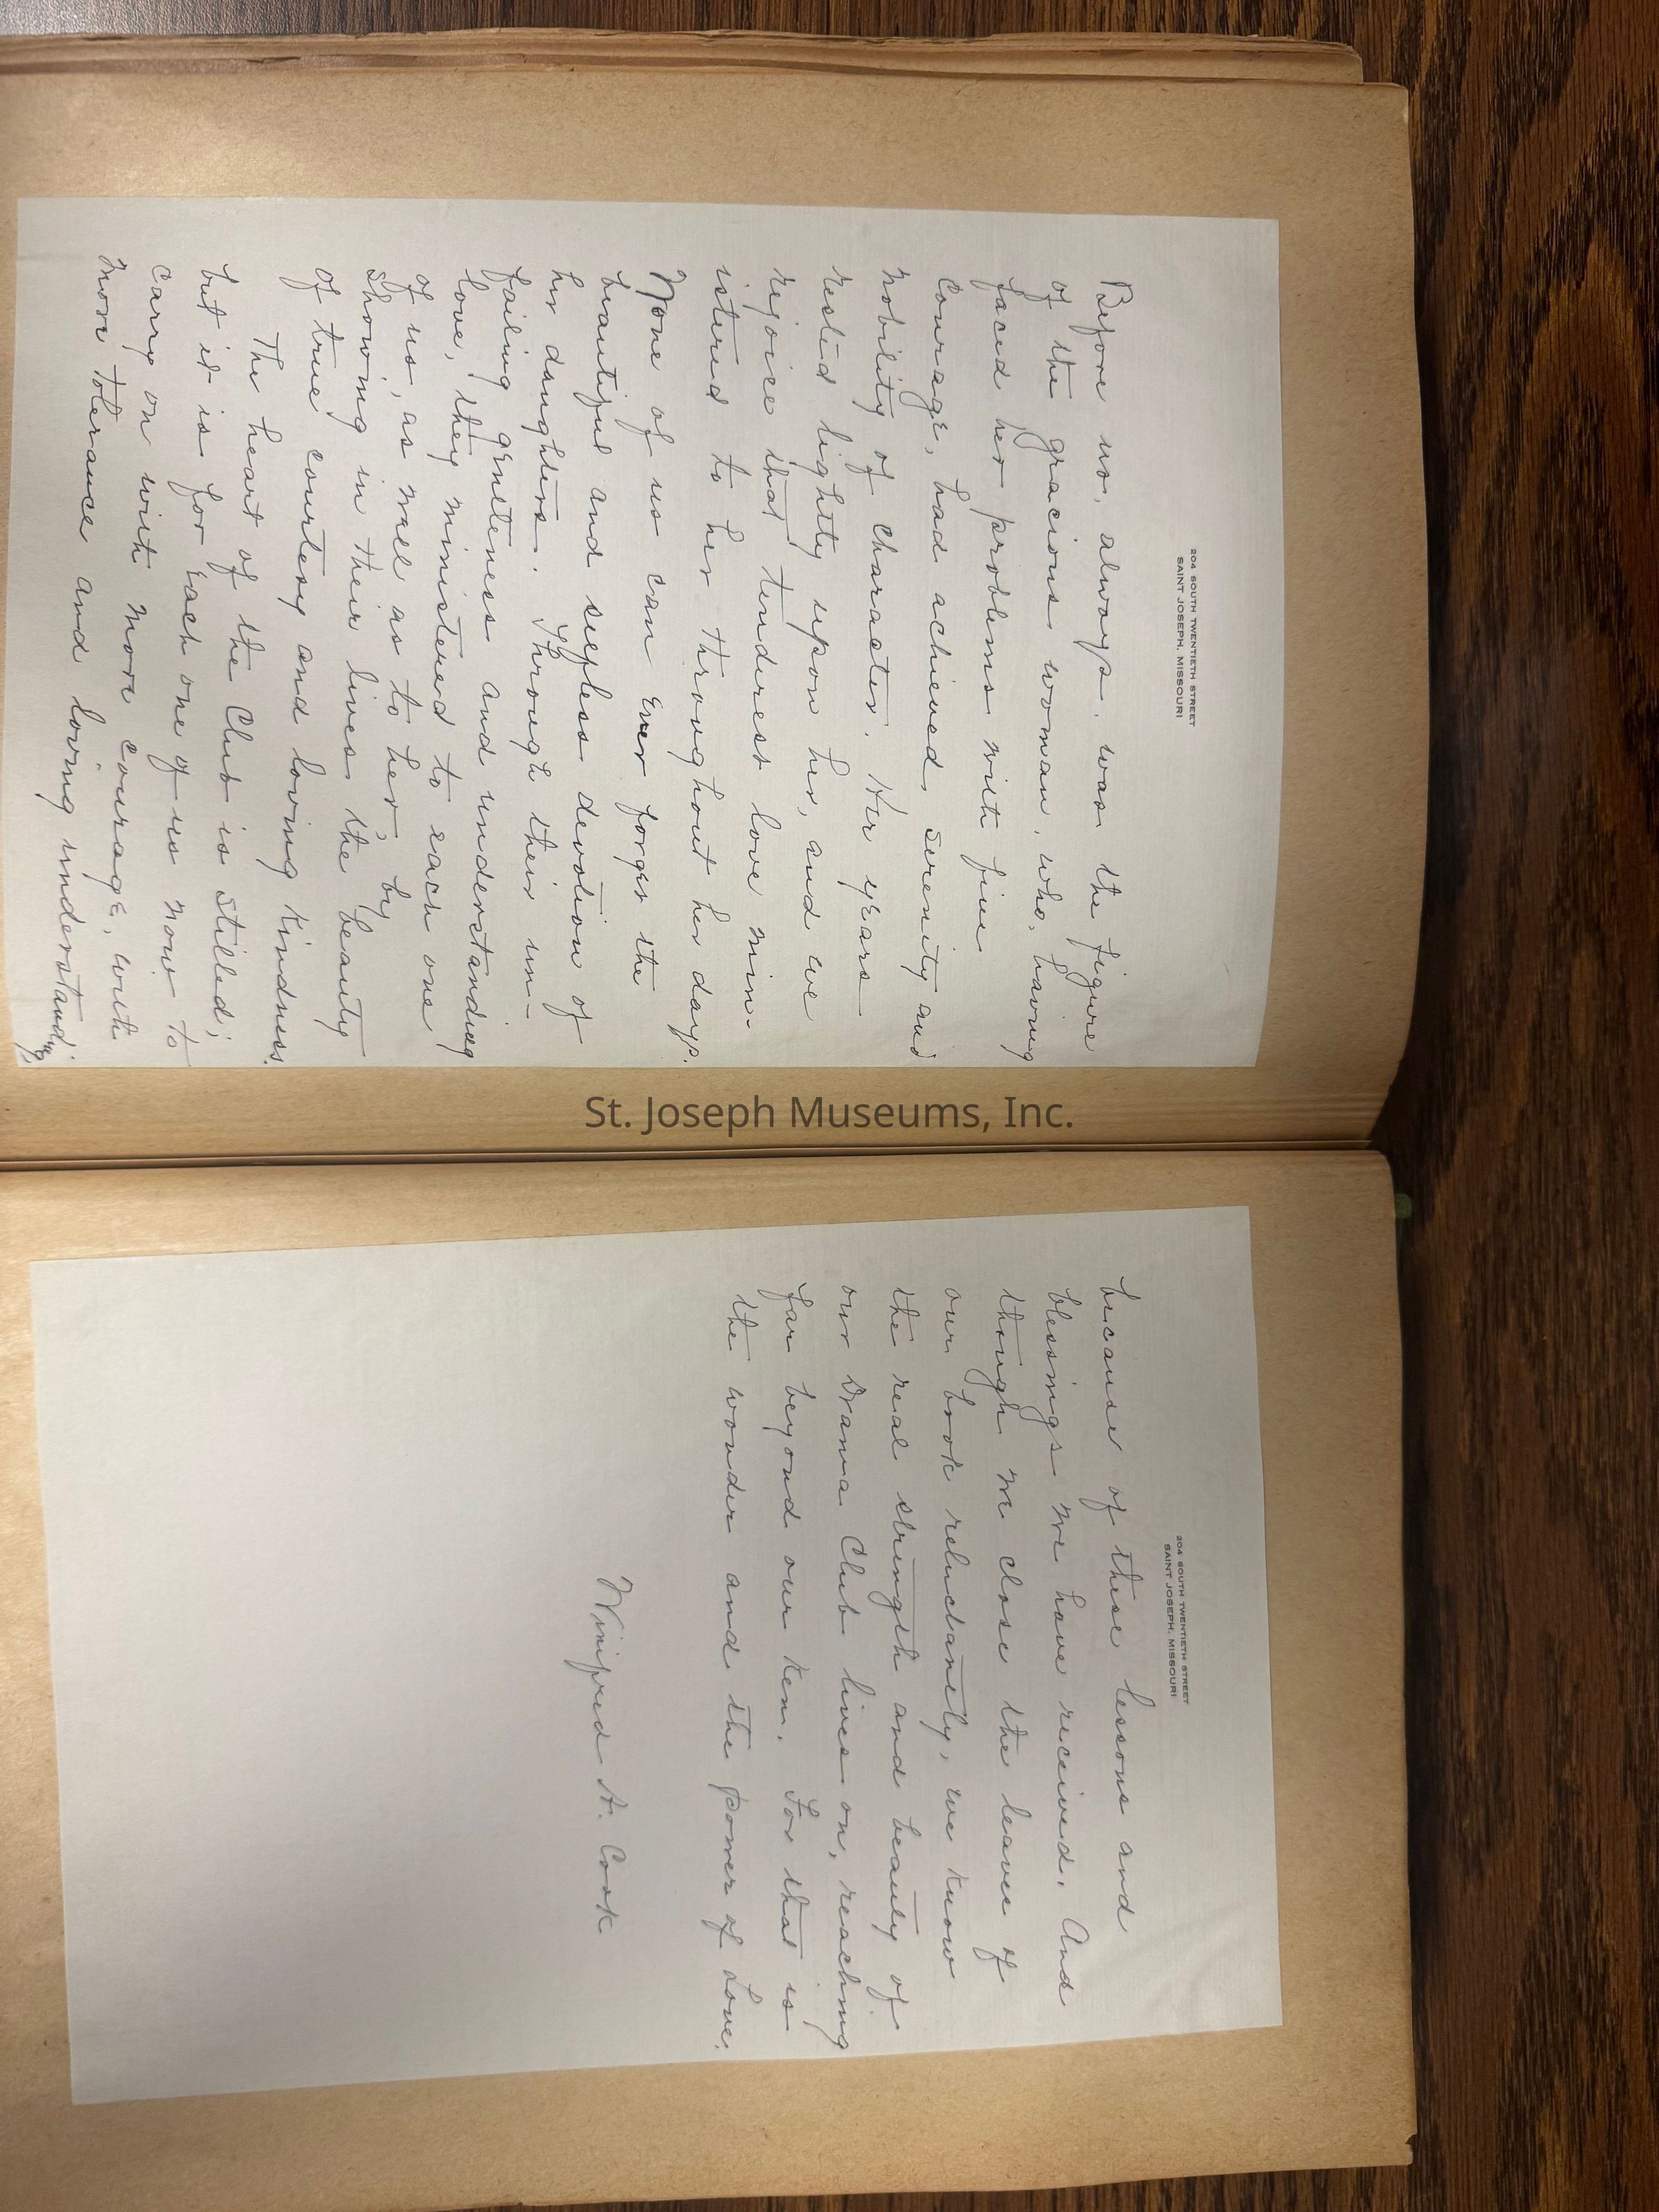 204 SOUTH TWENTIETH STREET
SAINT JOSEPH, MISSOURI
Before us, always, was the figure
of the gracious woman, who, having
faced her problems with fine
courage, had achieved serenity and
nobility of character. Her years
rested lightly upon her, and we
rejoice that tenderest love min-
istered to her throughout her days.
None of us can ever forget the
beautiful and selfless devotion of
her daughters. Through their un-
failing gentleness and understanding
love, they ministered to each one
of us, as well as to her, by
showing in their lives the beauty
of true courtesy and loving kindness.
The heart of the Club is stilled;
but it is for each one of us now to
carry on with more courage, with
more tolerance and loving understanding,
204 SOUTH TWENTIETH STREET
SAINT JOSEPH, MISSOURI
because of these lessons and
blessings we have received. And
though we close the leaves of
our book reluctantly, we know
the real strength and beauty of
our Drama Club lives on, reaching
far beyond our ken. For that is
the wonder and the power of Love.
Winifred A. Cook
St. Joseph Museums, Inc.